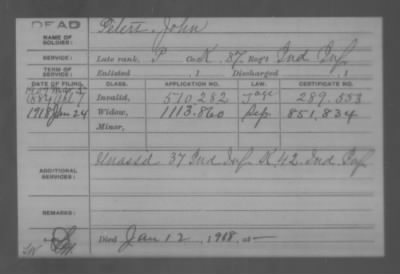 DEAD
NAME OF SOLDIER: Gebert, John
SERVICE: Late rank, P Co. K, 87 Reg't Ind Inf
TERM OF SERVICE: Enlisted , 1 Discharged , 1
DATE OF FILING. CLASS. APPLICATION NO. LAW. CERTIFICATE NO.
1884 Invalid, 510,282 289.553
1918 Jan 24 Widow, 1113.860 851,834
Minor,
ADDITIONAL SERVICES: Unassd 37 Ind Inf. K. 42 Ind Inf
REMARKS:
Died Jan 12, 1918, at